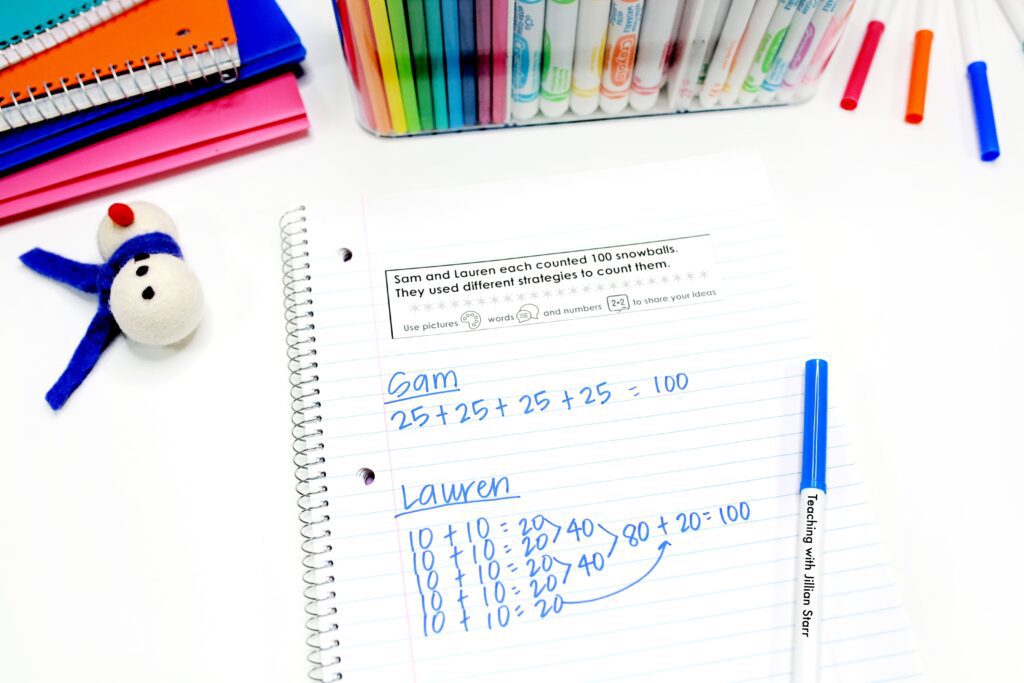 Crayola
Sam and Lauren each counted 100 snowballs.
They used different strategies to count them.
Use pictures words and numbers 2+2 to share your ideas
Sam
25 + 25 + 25 + 25 = 100
Lauren
10 + 10 = 20
10 + 10 = 20 40
10 + 10 = 20 80 + 20 = 100
10 + 10 = 20 40
10 + 10 = 20
Teaching with Jillian Starr